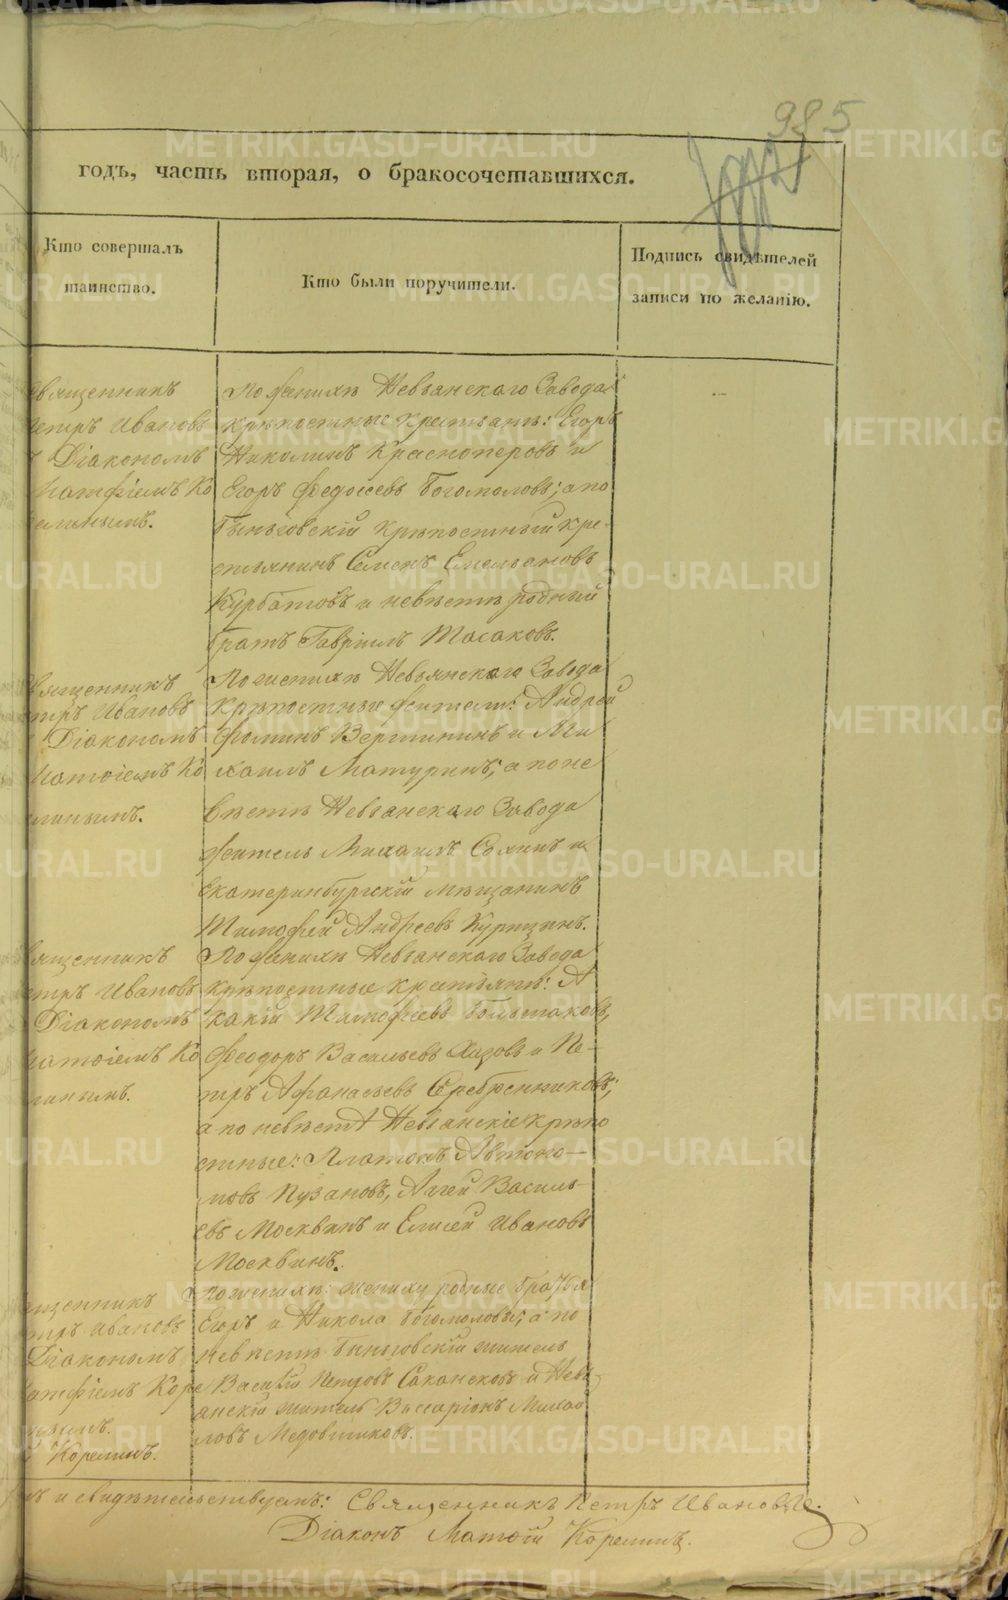 985
годъ, часть вторая, о бракосочетавшихся.
Кто совершалъ
таинство.
Кто были поручители.
Подпись свидѣтелей
записи по желанію.
священникъ
Петръ Ивановъ
Діакономъ
Матфіемъ Ко
По женихѣ Невьянскаго Завода
крѣпостные крестьяне: Егоръ
Никитинъ Красноперовъ и
Егоръ Федосѣевъ Богомоловъ; а по
Быньговскій крѣпостный кре-
стьянинъ Семенъ Емельановъ
Курбатовъ и невѣстѣ родный
братъ Гавріилъ Тасаковъ.
священникъ
Петръ Ивановъ
Діакономъ
Матѳіемъ Ко
По женихѣ Невьянскаго Завода
крѣпостные жители: Андрей
Фоминъ Вершининъ и Ми
хаилъ Матуринъ; а по не
вѣстѣ Невьанскаго Завода
житель Михаилъ и
Екатеринбургскій мѣщанинъ
Тимофей Андреевъ Курицынъ.
священникъ
Петръ Ивановъ
Діакономъ
Матѳіемъ Ко
По женихѣ Невьанскаго Завода
крѣпостные крестьяне: А
какій Тимофеевъ Большаковъ,
Феодоръ Васильевъ Хизовъ и Пе-
тръ Афанасьевъ Серебренниковъ;
а по невѣстѣ Невьанскіе крѣпо
стные: Платонъ Автоно-
мовъ Пузановъ, Аггей Василь-
евъ Москвинъ и Елисей Ивановъ
Москвинъ.
священникъ
Петръ Ивановъ
Діакономъ
Матфіемъ Коре
Корелинъ.
По женихѣ: жениху родные братья
Егоръ и Никола Богомоловы; а по
невѣстѣ Быньговскій житель
Василій Петровъ Сакансковъ и Невь
анскій житель Виссаріонъ Михаи
ловъ Медовщиковъ.
и свидѣтельствуемъ: Священникъ Петръ Ивановъ.
Діаконъ Матѳій Корелинъ.
METRIKI.GASO-URAL.RU